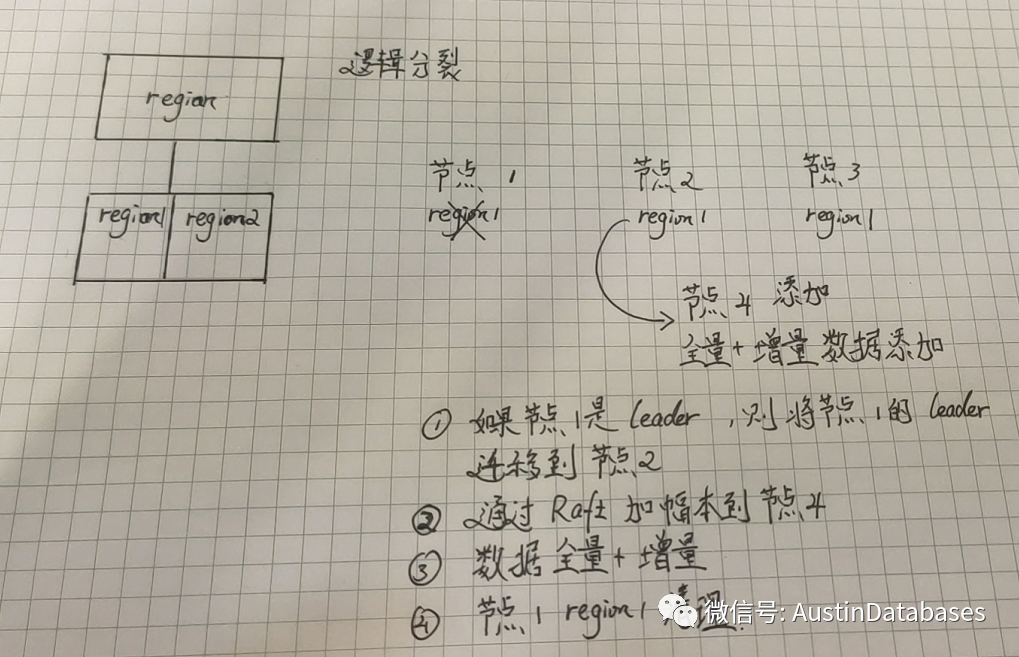 逻辑分裂
region
region1 region2
节点 1 节点2 节点3
region1 region1 region1
节点4 添加
全量+增量数据添加
① 如果节点1是leader,则将节点1的leader
迁移到节点2
② 通过Raft 加幅本到节点4
③ 数据全量+增量
④ 节点1 region1
微信号: AustinDatabases